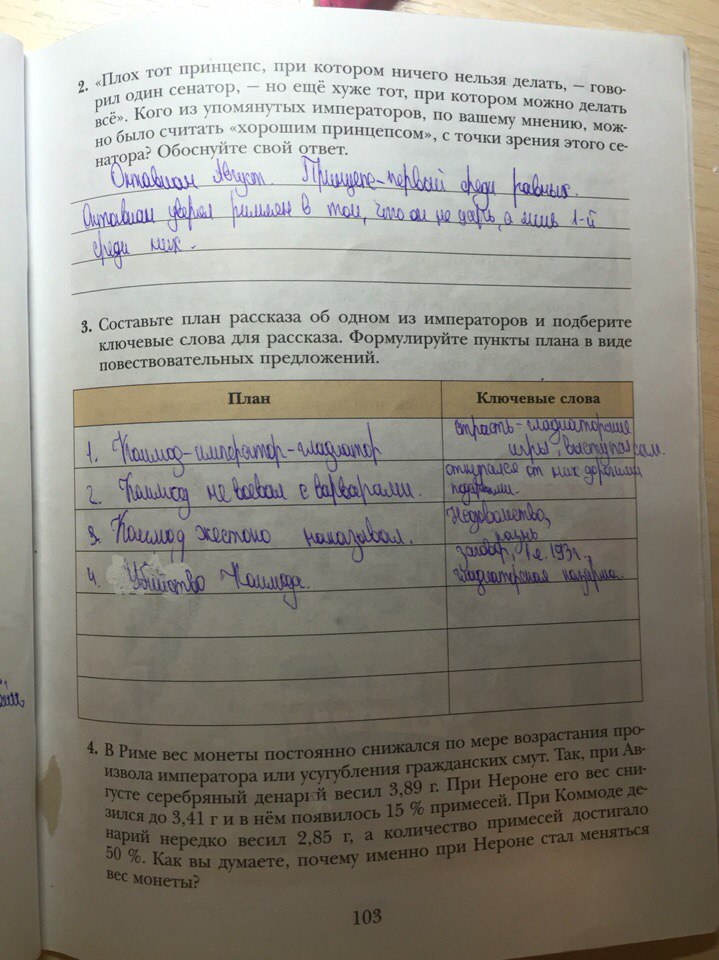 2. «Плох тот принцепс, при котором ничего нельзя делать, — гово-
рил один сенатор, — но ещё хуже тот, при котором можно делать
всё». Кого из упомянутых императоров, по вашему мнению, мож-
но было считать «хорошим принцепсом», с точки зрения этого се-
натора? Обоснуйте свой ответ.
Октавиан Август. Принцепс-первый среди равных.
Октавиан уверял римлян в том, что он не царь, а лишь 1-й
среди них.
3. Составьте план рассказа об одном из императоров и подберите
ключевые слова для рассказа. Формулируйте пункты плана в виде
повествовательных предложений.
План
Ключевые слова
1. Коммод-император-гладиатор
страсть-гладиаторские
игры, выступал сам.
2. Коммод не воевал с варварами.
откупался от них дорогими
подарками.
3. Коммод жестоко наказывал.
Недовольство,
казнь
4. Убийство Коммода.
заговор, 193г.,
гладиаторская казарма.
4. В Риме вес монеты постоянно снижался по мере возрастания про-
извола императора или усугубления гражданских смут. Так, при Ав-
густе серебряный денарий весил 3,89 г. При Нероне его вес сни-
зился до 3,41 г и в нём появилось 15 % примесей. При Коммоде де-
нарий нередко весил 2,85 г, а количество примесей достигало
50 %. Как вы думаете, почему именно при Нероне стал меняться
вес монеты?
103